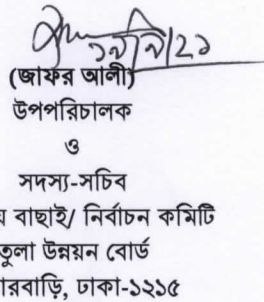 ১৯/৯/২১
(জাফর আলী)
উপপরিচালক
ও
সদস্য-সচিব
বাছাই/ নির্বাচন কমিটি
তুলা উন্নয়ন বোর্ড
ঢাকা-১২১৫